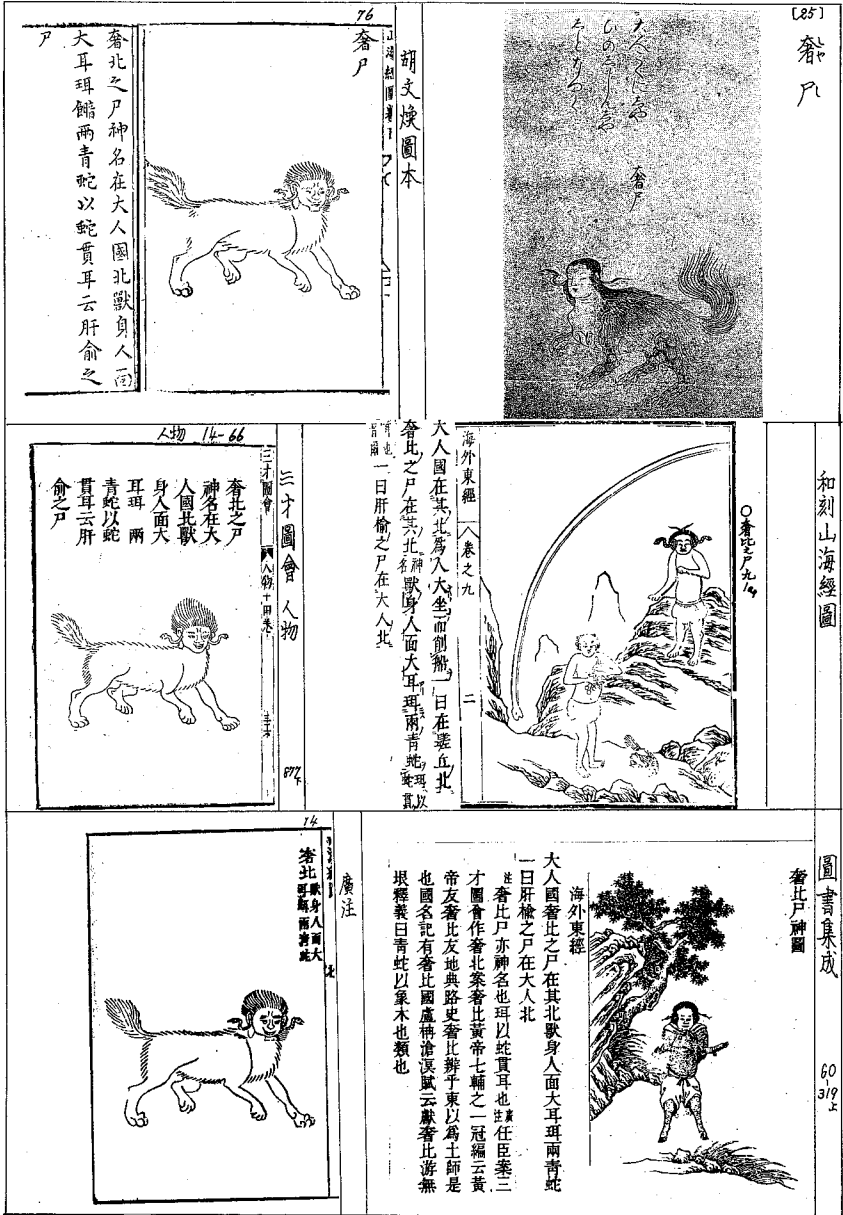 [25]
奢尸
しや
し
奢尸
76
胡文煥圖本
奢尸
奢北之尸神名在大人國北獸身人面
大耳珥䶢兩青蛇以蛇貫耳云肝俞之
尸
和刻山海經圖
○奢比之尸九
海外東經
卷之九
二
大人國在其北爲人大坐而削船一曰在𨲠丘北
奢比之尸在其北神名獸身人面大耳珥兩青蛇珥以蛇貫
耳也
一曰肝榆之尸在大人北
人物 14-66
三才圖會 人物
877下
三才圖會
人物十四卷
奢北之尸
神名在大
人國北獸
身人面大
耳珥兩
青蛇以蛇
貫耳云肝
俞之尸
圖書集成
60-319上
奢比尸神圖
海外東經
大人國奢比之尸在其北獸身人面大耳珥兩青蛇
一曰肝榆之尸在大人北
註奢比尸亦神名也珥以蛇貫耳也廣註任臣案三
才圖會作奢北案奢比黃帝七輔之一冠編云黃
帝友奢比友地典路史奢比辨乎東以爲土師是
也國名記有奢比國盧柟滄溟賦云獻奢比游無
垠釋義曰青蛇以象木也類也
14
廣注
奢北獸身人面大
耳珥兩青蛇